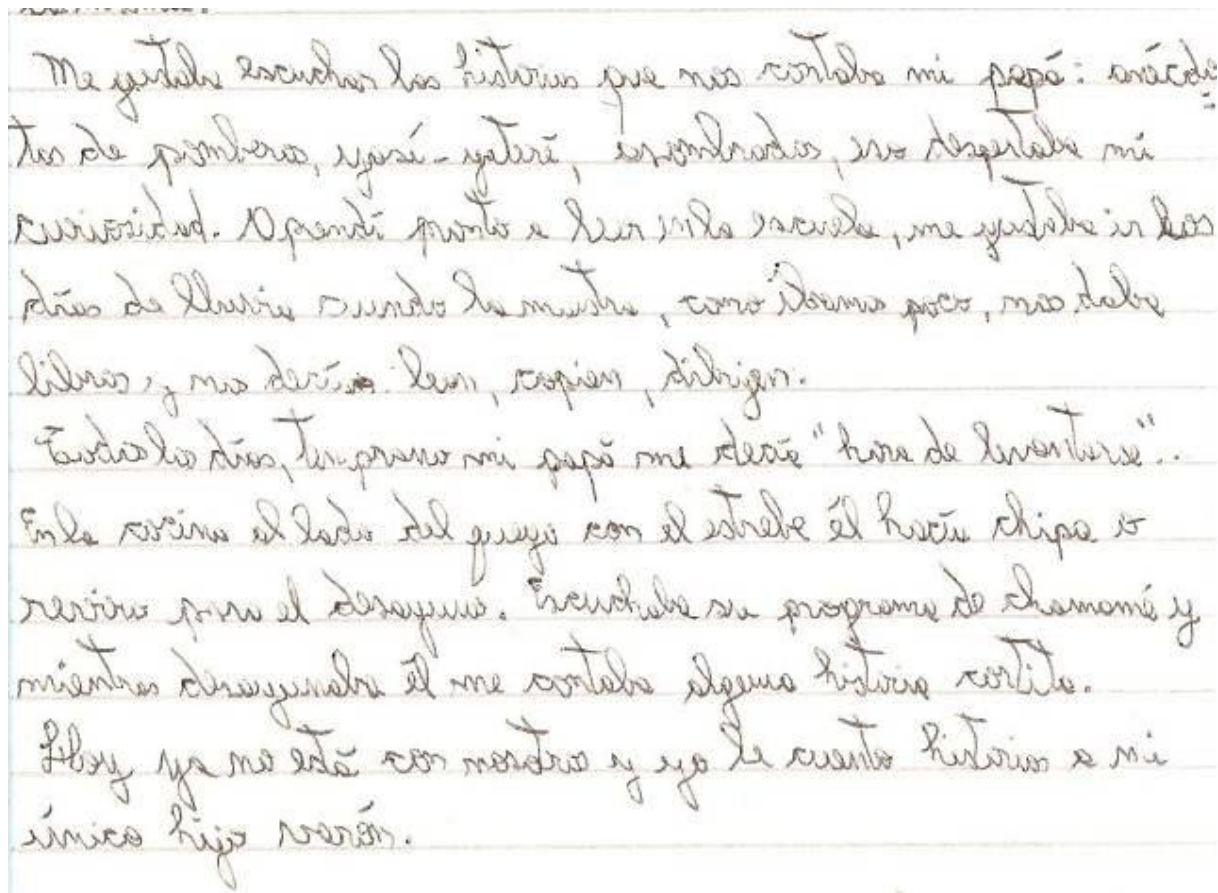 Me gustaba escuchar las historias que nos contaba mi papá: anécdo=
tas de pombero, yasí-yateré, asombrados, eso despertaba mi
curiosidad. Aprendí pronto a leer en la escuela, me gustaba ir los
días de lluvia cuando la maestra, como íbamos poco, nos daba
libros y nos decía: lean, copien, dibujen.
Todos los días, temprano mi papá me decía "hora de levantarse"..
En la cocina al lado del fuego con el estrebe él hacía chipa o
reviro para el desayuno. Escuchaba su programa de chamamé y
mientras desayunaba él me contaba alguna historia cortita.
Hoy ya no está con nosotros y yo le cuento historias a mi
único hijo varón.